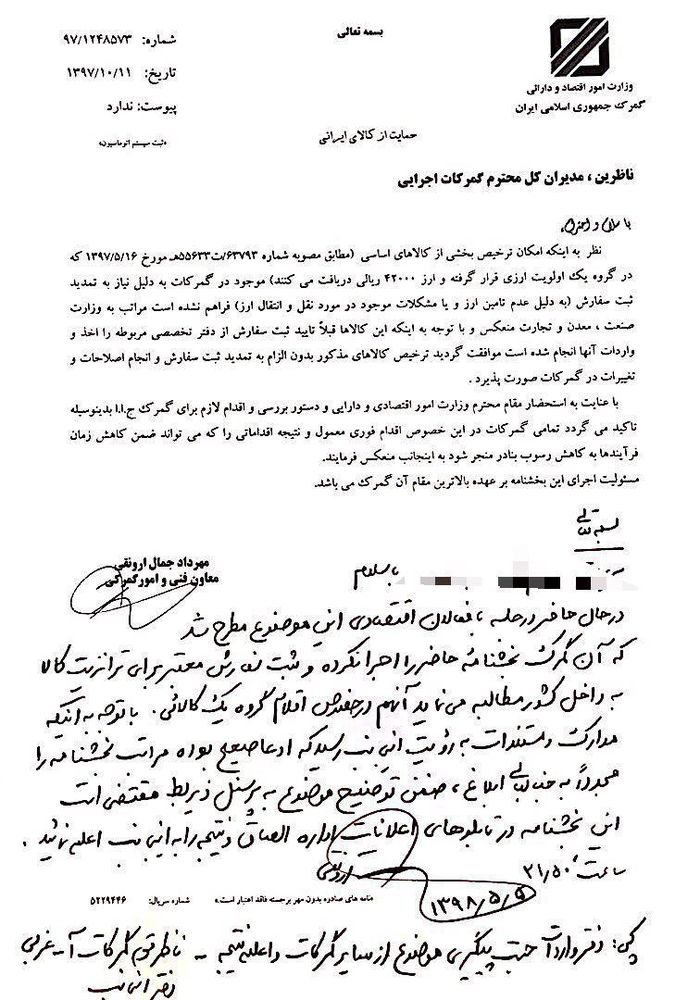 بسمه تعالی
شماره: ۹۷/۱۲۴۸۵۷۳
تاریخ: ۱۳۹۷/۱۰/۱۱
پیوست: ندارد
«ثبت سیستم اتوماسیون»
وزارت امور اقتصاد و دارائی
گمرک جمهوری اسلامی ایران
حمایت از کالای ایرانی
ناظرین ، مدیران کل محترم گمرکات اجرایی
با سلام و احترام
نظر به اینکه امکان ترخیص بخشی از کالاهای اساسی (مطابق مصوبه شماره ۶۳۷۹۳/ت۵۵۶۳۳هـ مورخ ۱۳۹۷/۵/۱۶ که
در گروه یک اولویت ارزی قرار گرفته و ارز ۴۲۰۰۰ ریالی دریافت می کنند) موجود در گمرکات به دلیل نیاز به تمدید
ثبت سفارش (به دلیل عدم تامین ارز و یا مشکلات موجود در مورد نقل و انتقال ارز) فراهم نشده است مراتب به وزارت
صنعت ، معدن و تجارت منعکس و با توجه به اینکه این کالاها قبلاً تایید ثبت سفارش از دفتر تخصصی مربوطه را اخذ و
واردات آنها انجام شده است موافقت گردید ترخیص کالاهای مذکور بدون الزام به تمدید ثبت سفارش و انجام اصلاحات و
تغییرات در گمرکات صورت پذیرد .
با عنایت به استحضار مقام محترم وزارت امور اقتصادی و دارایی و دستور بررسی و اقدام لازم برای گمرک ج.ا.ا بدینوسیله
تاکید می گردد تمامی گمرکات در این خصوص اقدام فوری معمول و نتیجه اقداماتی را که می تواند ضمن کاهش زمان
فرآیندها به کاهش رسوب بنادر منجر شود به اینجانب منعکس فرمایند.
مسئولیت اجرای این بخشنامه بر عهده بالاترین مقام آن گمرک می باشد.
مهرداد جمال ارونقی
معاون فنی و امور گمرکی
بسمه تعالی
با سلام
در حال حاضر در جلسه با فعالان اقتصادی این موضوع مطرح شد
که آن گمرک بخشنامه حاضر را اجرا نکرده و ثبت سفارش معتبر برای ترانزیت کالا
به داخل کشور مطالبه می نماید آنهم در خصوص اقلام گروه یک کالائی . با توجه به اینکه
مدارک و مستندات به رؤیت اینجانب رسید که ادعا صحیح بوده مراتب بخشنامه را
مجدداً به جنابعالی ابلاغ ، ضمن توضیح موضوع به پرسنل ذیربط مقتضی است
این بخشنامه در تابلوهای اعلانات اداره الصاق و نتیجه را به اینجانب اعلام نمائید .
ساعت ۲۱:۵۰
ارونقی
۱۳۹۸/۵/۵
«نامه های صادره بدون مهر برجسته فاقد اعتبار است.»
شماره سریال: ۵۲۲۹۴۴۶
کپی: دفتر واردات جهت پیگیری موضوع از سایر گمرکات و اعلام نتیجه - ناظر محترم گمرکات آ-غربی
دفتر اینجانب